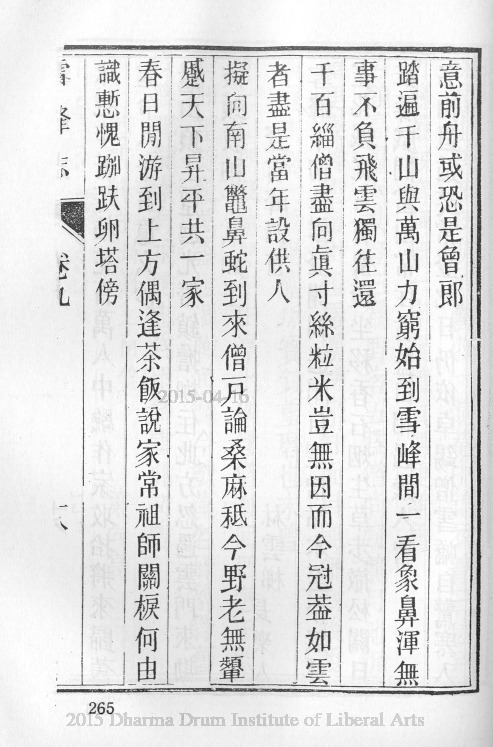 意前舟或恐是曾郎
踏遍千山與萬山力窮始到雪峰間一看象鼻渾無
事不負飛雲獨往還
千百緇僧盡向眞寸絲粒米豈無因而今冠葢如雲
者盡是當年設供人
擬向南山鼈鼻蛇到來僧只論桑麻秪今野老無顰
蹙天下昇平共一家
春日閒游到上方偶逢茶飯說家常祖師關棙何由
識慙愧跏趺卵塔傍
雪峰志
卷九
十八
2015-04-16
265
2015 Dharma Drum Institute of Liberal Arts